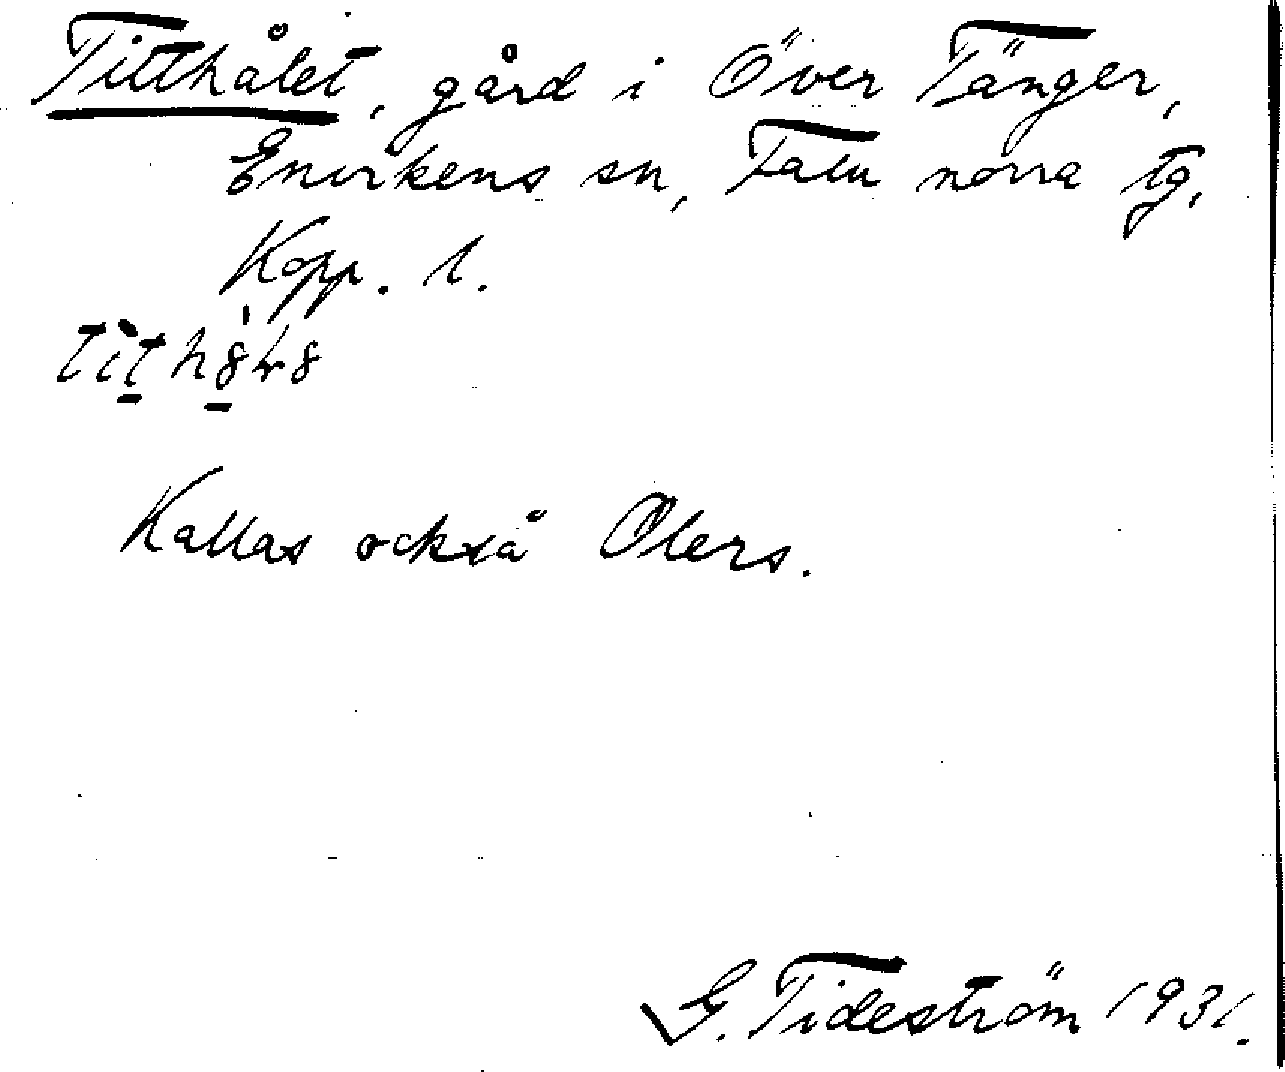 Titthålet, gård i Över Tänger,
Envikens sn, Falu norra tg,
Kopp. l.
Kallas också Olers.
G. Tideström 1931.